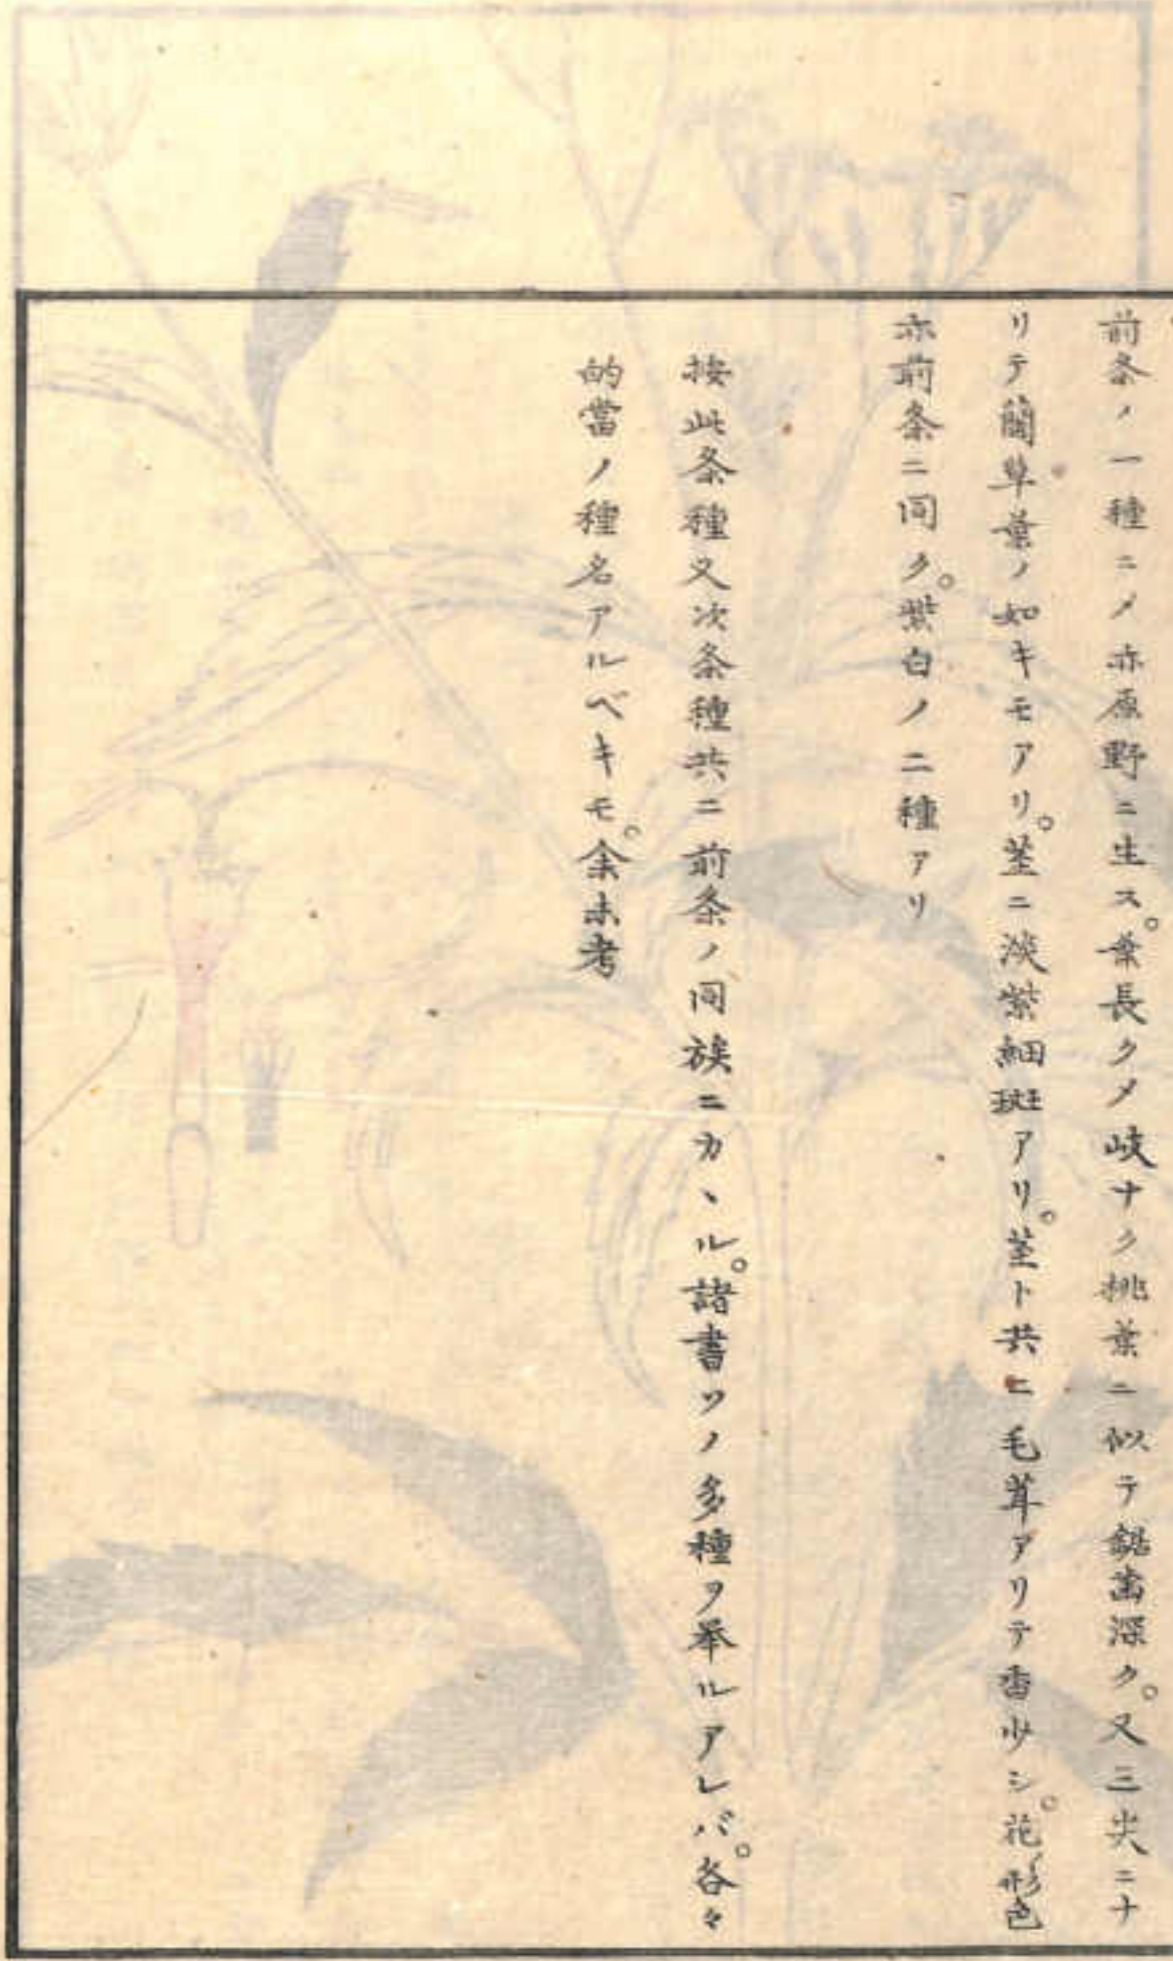 前条ノ一種ニメ亦原野ニ生ス。葉長クメ岐ナク桃葉ニ似テ鋸歯深ク。又三尖ニナ
リテ蘭草葉ノ如キモアリ。茎ニ淡紫細斑アリ。茎ト共ニ毛茸アリテ香少シ。花形色
亦前条ニ同ク。紫白ノ二種アリ
按此条種又次条種共ニ前条ノ同族ニカヽル。諸書ソノ多種ヲ挙ルアレバ。各々
的當ノ種名アルベキモ。余未考